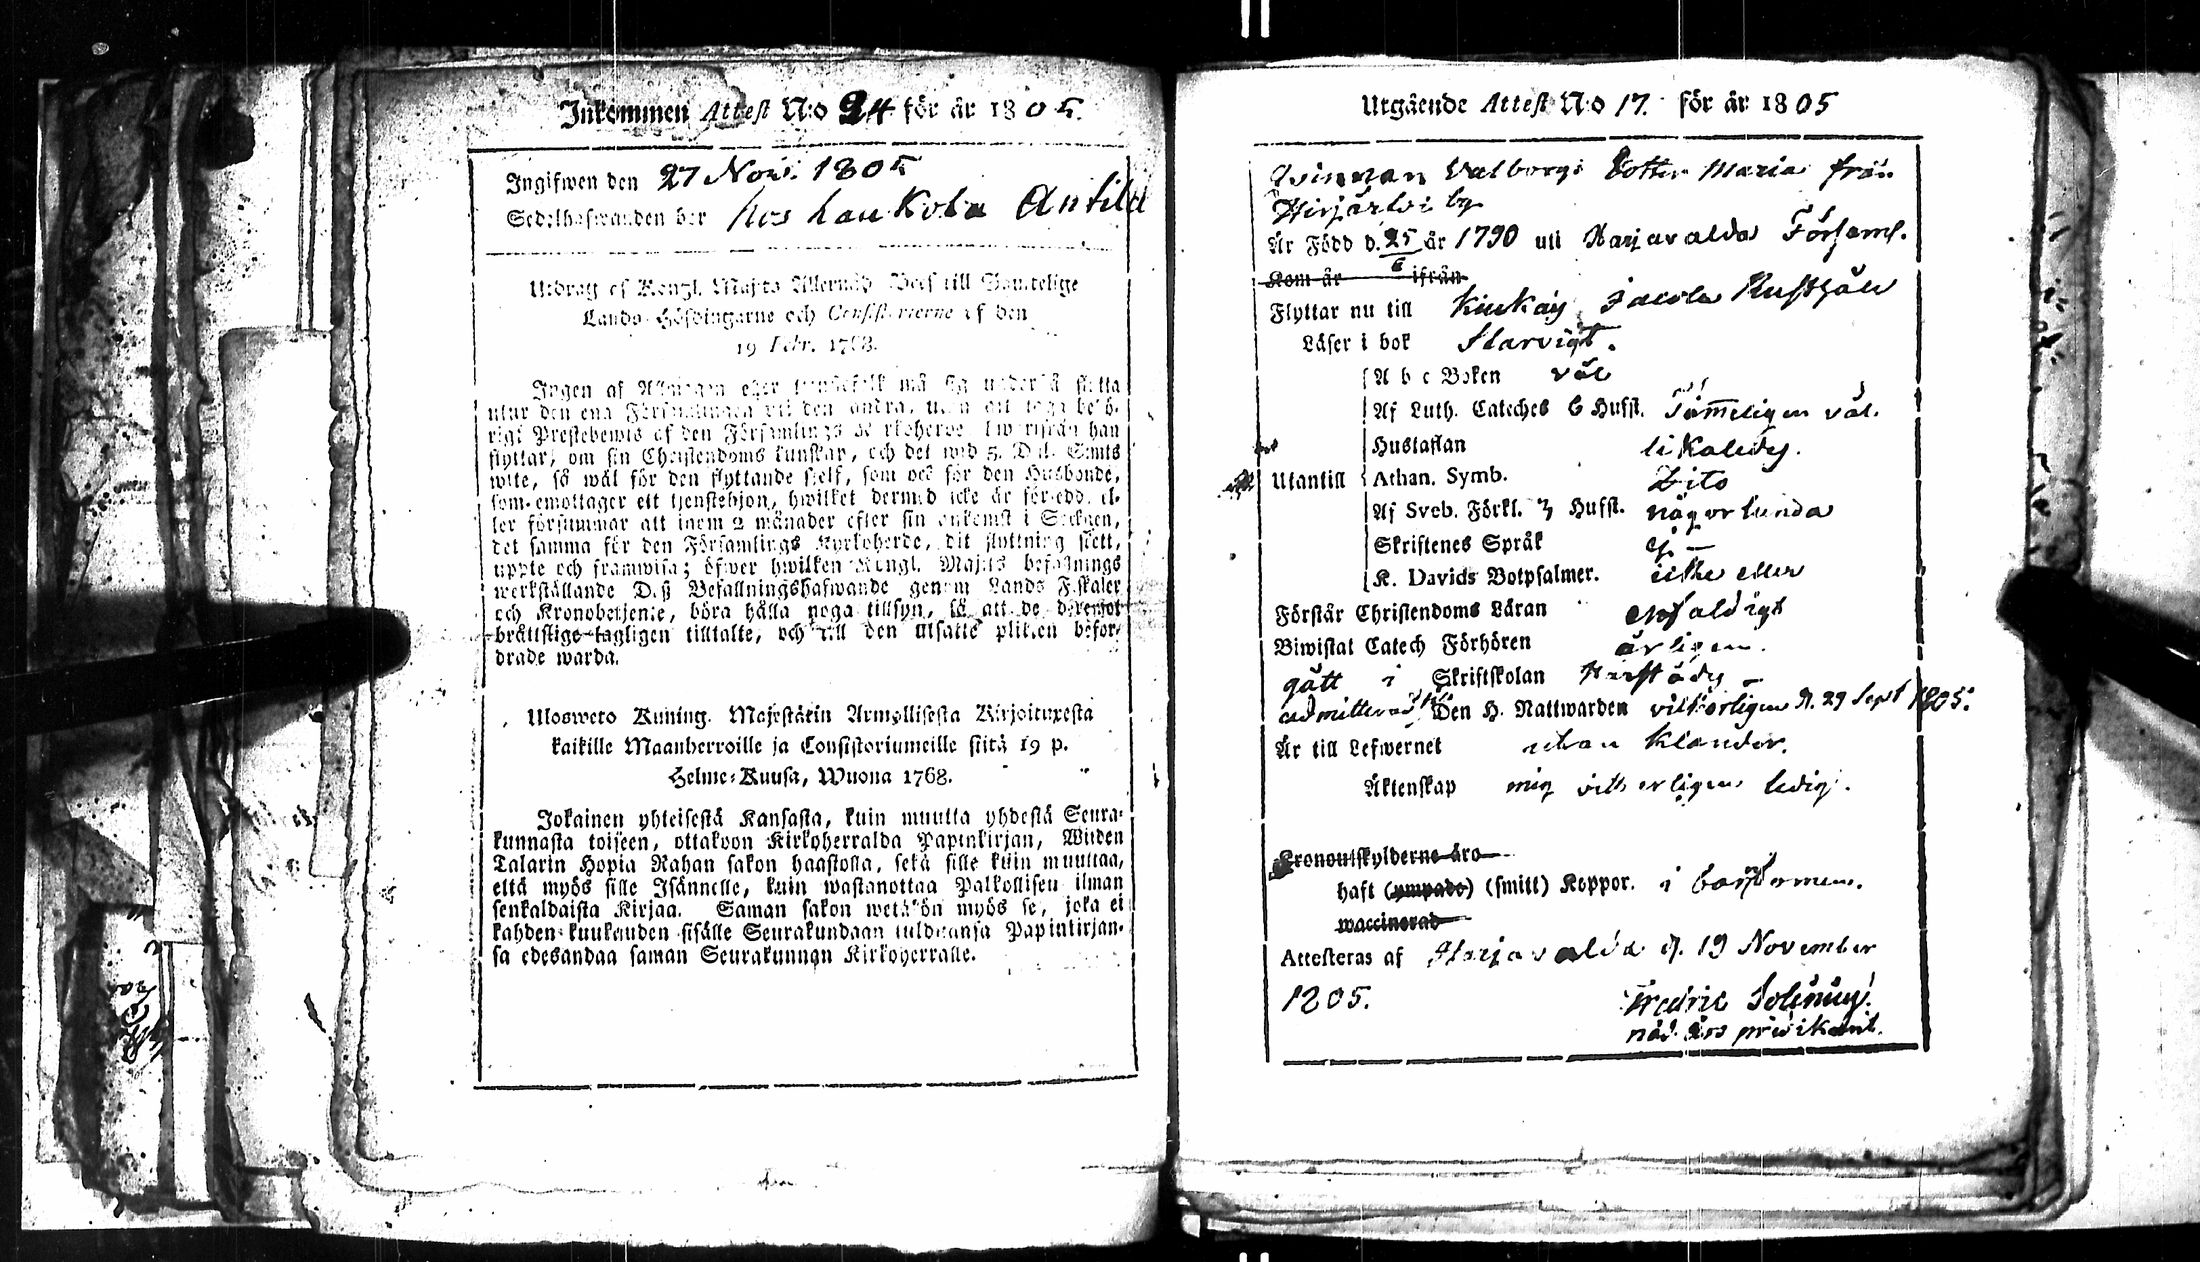 Inkommen Attest N:o 24 för år 1805.
Ingifwen den 27 Nov. 1805
Sedelhafwanden bor hos Laukola Antila
Utdrag af Kongl. Maj:ts Allernåd. Bref till Samtelige
Lands-Höfdingarne och Consistorierne af den
19 Febr. 1768.
Ingen af Allmogen eller tjenstefolk må sig understå flytta
utur den ena Församlingen uti den andra, utan att taga behö-
rigt Prestebewis af den Församlings Kyrkoherde, hwarifrån han
flyttar, om sin Christendoms kunskap, och det wid 5. Dal. Smts
wite, så wäl för den flyttande sjelf, som ock för den Husbonde,
som emottager ett tjenstehjon, hwilket dermed icke är försedd, el-
ler försummar att inom 2 månader efter sin ankomst i Socknen,
det samma för den Församlings Kyrkoherde, dit flyttning skett,
uppte och framwisa; öfwer hwilken Kongl. Maj:ts befallnings
werkställande Deß Befallningshafwande genom Lands Fiskaler
och Kronobetjente, böra hålla noga tillsyn, så att de deremot
brottslige lagligen tilltalte, och till den utsatte plikten befor-
drade warda.
Ulosweto Kuning. Majestätin Armollisesta Kirjoituxesta
kaikille Maanherroille ja Consistoriumeille siitä 19 p.
Helme-Kuusa, Wuona 1768.
Jokainen yhteisestä Kansasta, kuin muutta yhdestä Seura-
kunnasta toiseen, ottakoon Kirkoherralda Papinkirjan, Wiiden
Talarin Hopia Rahan sakon haastolla, sekä sille kuin muuttaa,
että myös sille Isännelle, kuin wastanottaa Palkollisen ilman
senkaldaista Kirjaa. Saman sakon wetäkön myös se, joka ei
kahden kuukauden sisälle Seurakundaan tulduansa Papinkirjan-
sa edesandaa saman Seurakunnan Kirkoherralle.
Utgående Attest N:o 17. för år 1805
Valborgs Dotter Maria från
Hirjärlvi by
Är Född d. 25/6 år 1790 uti Harjavalda Församl.
Kom år ifrån
Flyttar nu till Kiukais Rusthåll
Läser i bok Starvigt.
A b c Boken väl
Af Luth. Cateches 6 Hufst. Tämmeligen väl.
Hustaflan likaledes.
Utantill Athan. Symb. Dito
Af Sveb. Förkl. 3 Hufst. någorlunda
Skriftenes Språk ej
K. Davids Botpsalmer. icke eller
Förstår Christendoms Läran enfaldigt
Biwistat Catech Förhören årligen.
gått i Skriftskolan
admitterad till Den H. Nattwarden vilkorligen d. 29 Sept 1805.
Är till Lefwernet utan klander.
Äktenskap mig vitterligen ledig.
Kronoutskylderne äro
haft (ympade) (smitt) Koppor. i barndomen.
waccinerad
Attesteras af Harjavalda d. 19 November
1805. Fredric
nåd. års predikant.